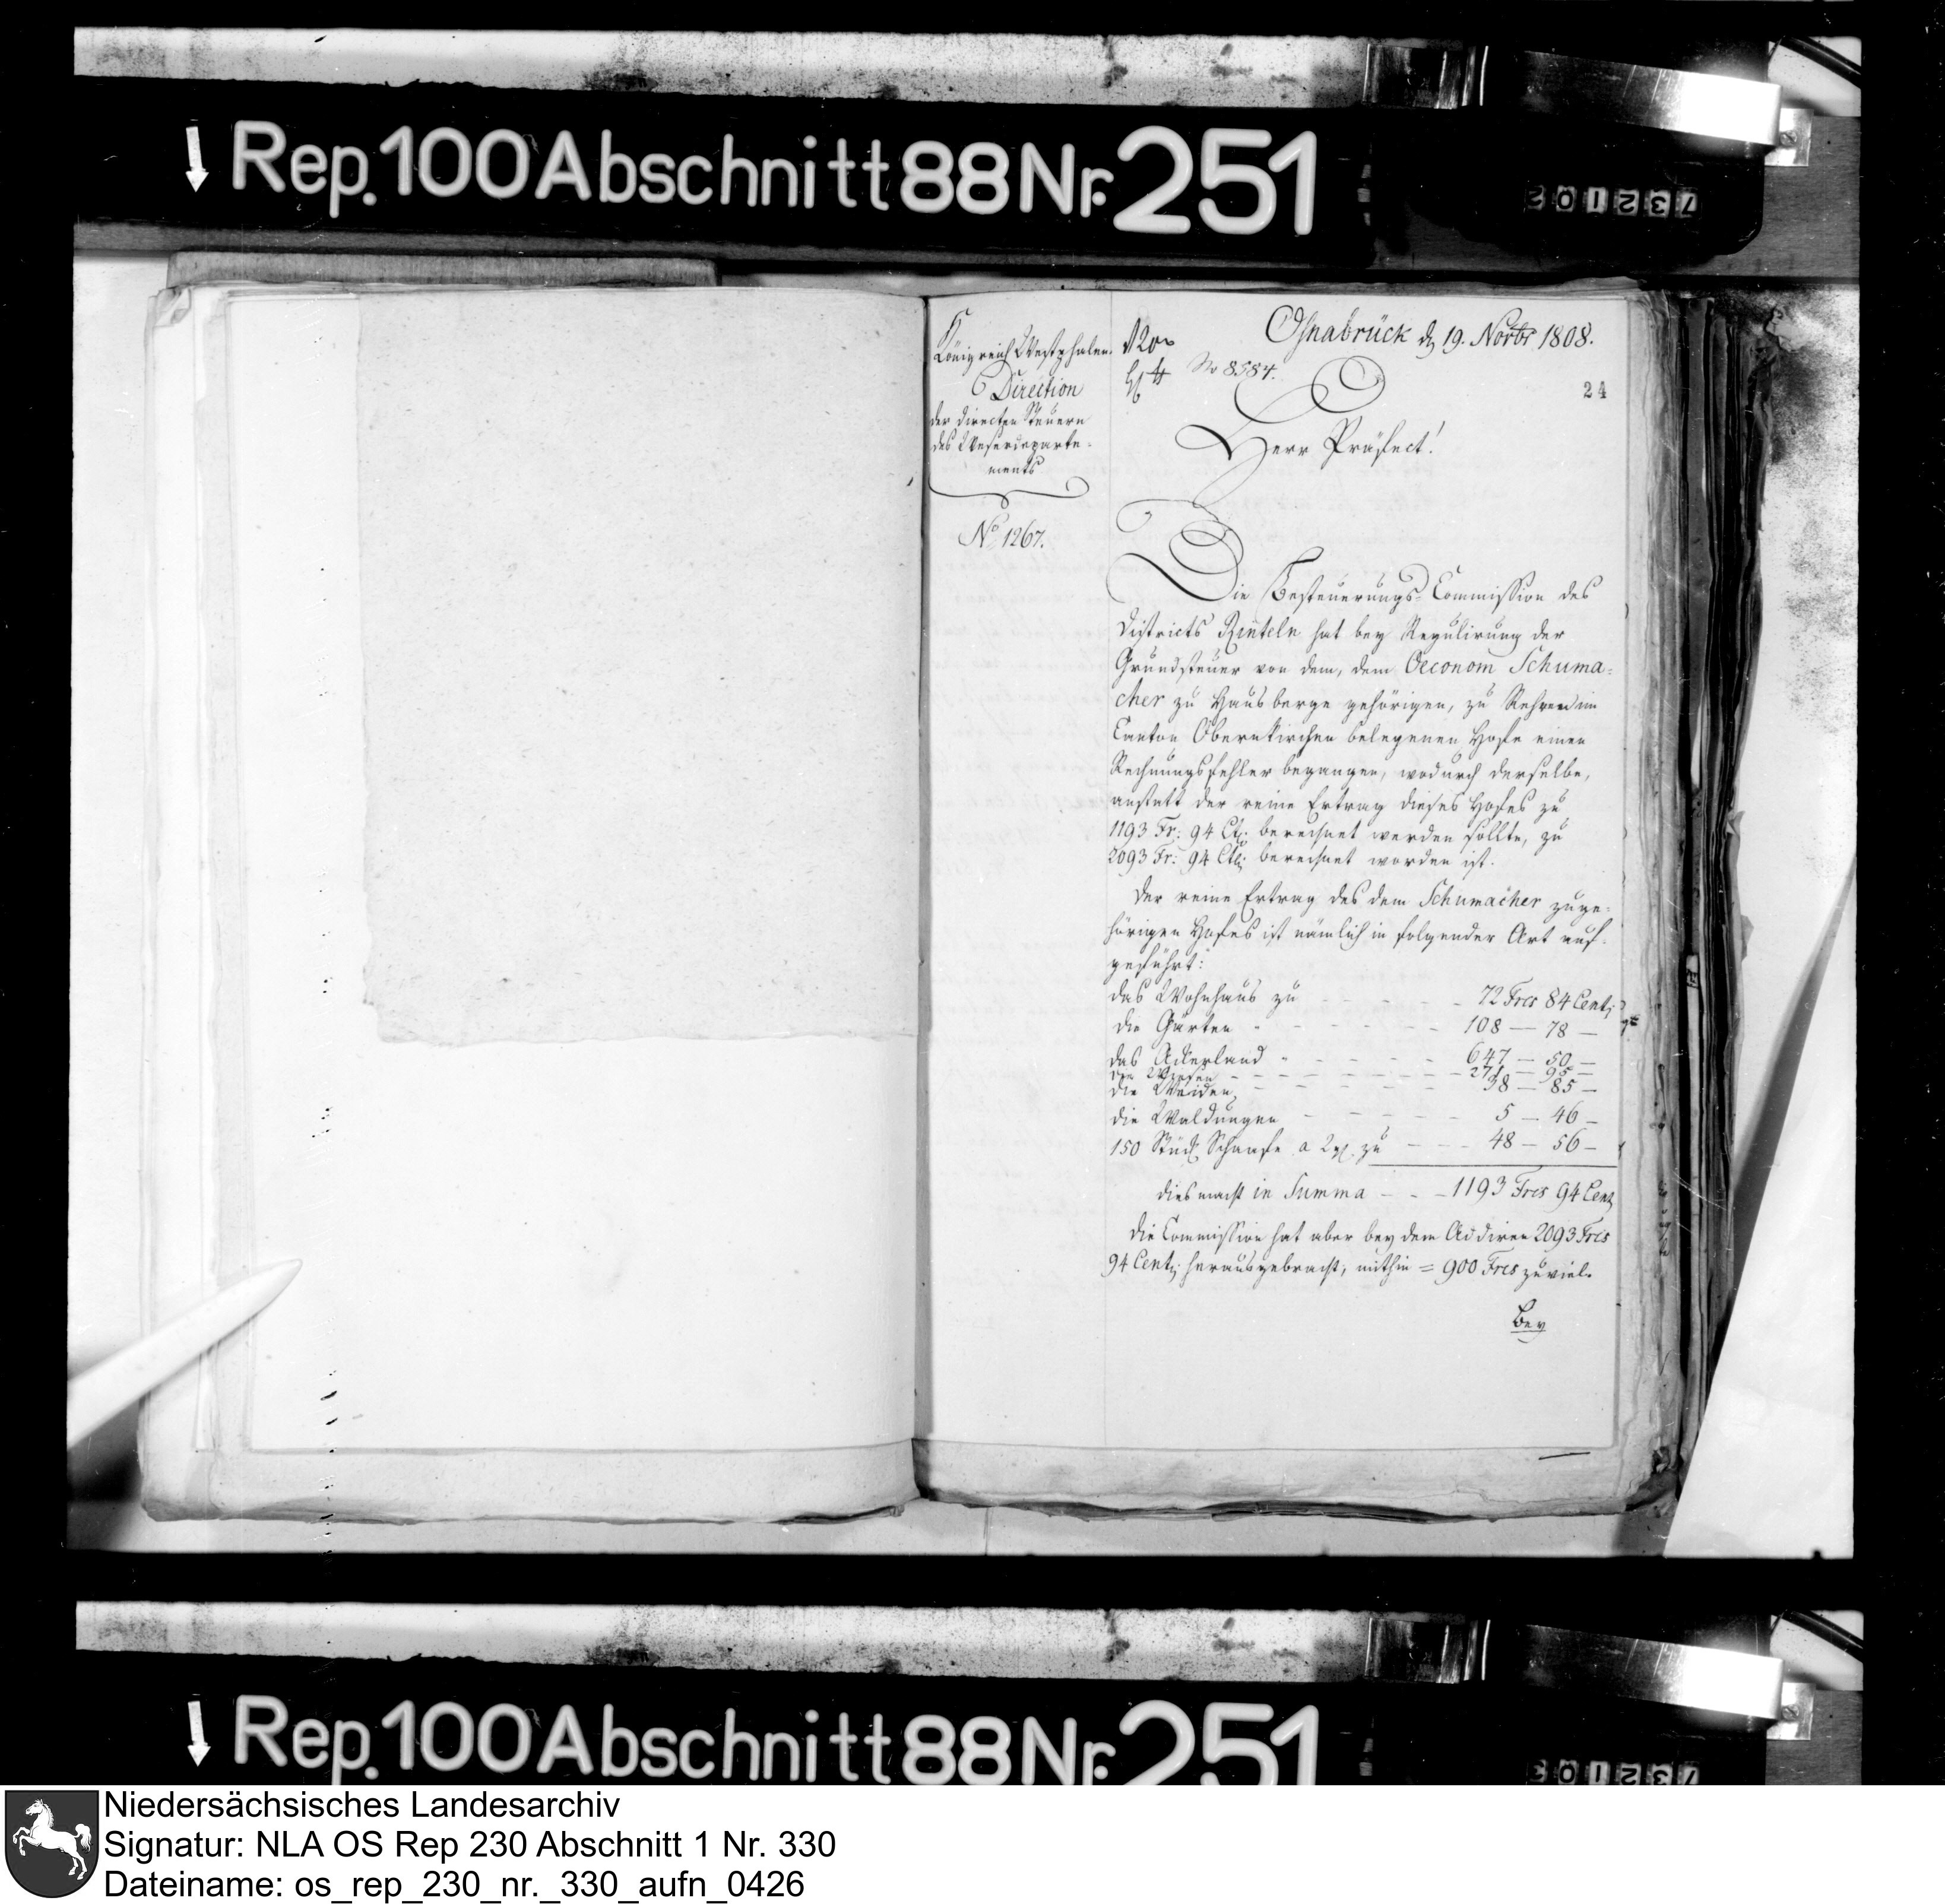 Rep. 100 Abschnitt 88 Nr. 251
Königreich Westphalen.
Direction
der directen Steuern
des Weserdeparte-
ments
No 1267.
Osnabrück d 19. Novbr 1808.
No 8584.
24
Herr Präfect!
Die Besteuerungs-Commission des
Districts Rinteln hat bey Regulirung der
Grundsteuer von dem, dem Oeconom Schuma-
cher zu Hausberge gehörigen, zu Rehren im
Canton Obernkirchen belegenen Hofe einen
Rechnungsfehler begangen, wodurch derselbe,
anstatt der reine Ertrag dieses Hofes zu
1193 Fr: 94 Ct: berechnet werden sollte, zu
2093 Fr: 94 Ct: berechnet worden ist.
Der reine Ertrag des dem Schumacher zuge-
hörigen Hofes ist nämlich in folgender Art auf-
geführt:
das Wohnhaus zu - - - - - 72 Frcs 84 Cent;
die Gärten - - - - - - 108 — 78 —
das Ackerland - - - - - - 647 — 50 —
die Wiesen - - - - - - 271 — 95 —
die Weiden, - - - - - - 38 — 85 —
die Waldungen - - - - - 5 — 46 —
150 Stück Schaafe a 2 zu - - - 48 — 56 —
dies macht in Summa - - - 1193 Frcs 94 Cent
die Commission hat aber bey dem Addiren 2093 Frcs
94 Cent; herausgebracht, mithin = 900 Frcs zuviel.
Bey
Rep. 100 Abschnitt 88 Nr. 251
Niedersächsisches Landesarchiv
Signatur: NLA OS Rep 230 Abschnitt 1 Nr. 330
Dateiname: os_rep_230_nr._330_aufn_0426